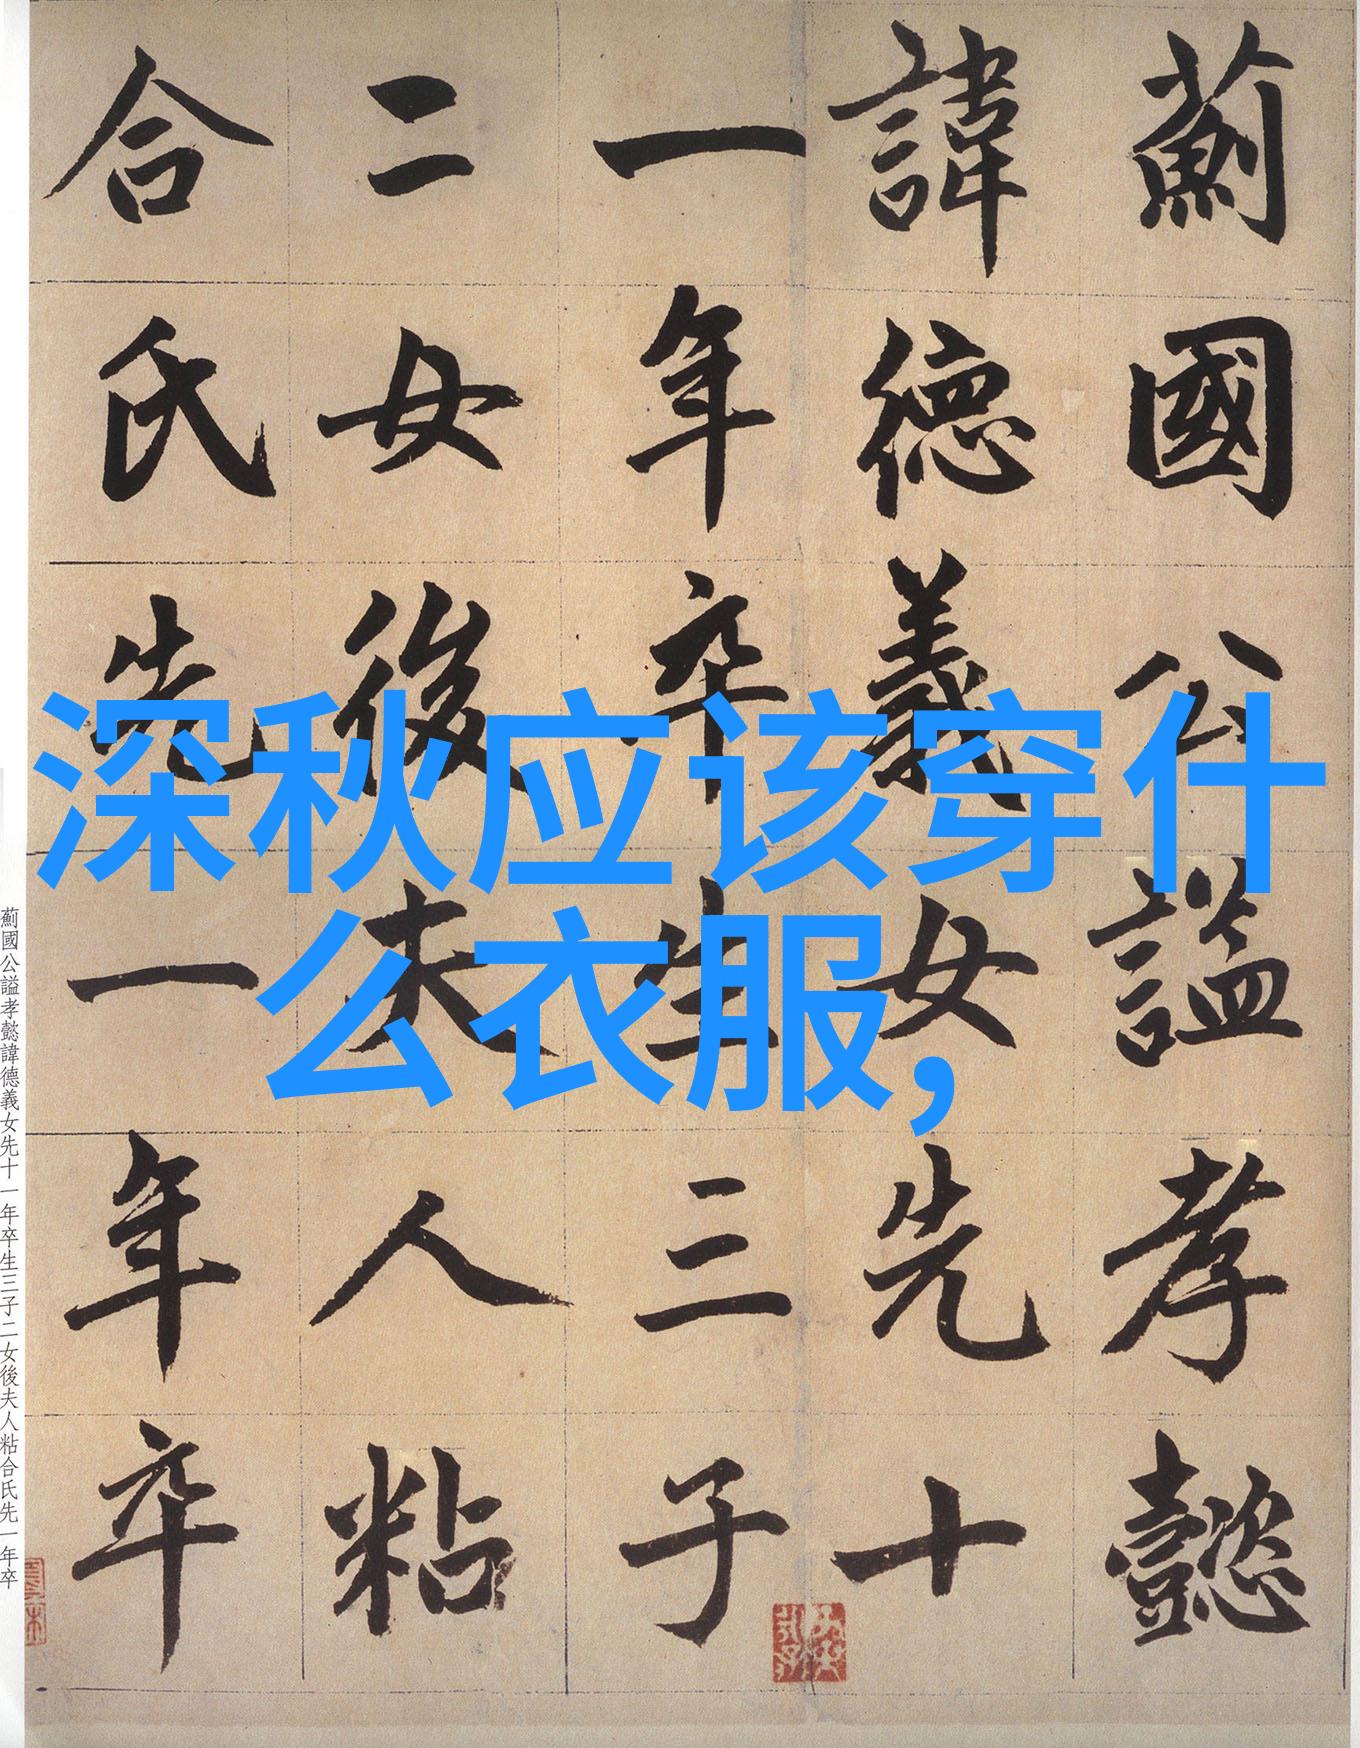 深秋应该穿什
么衣服,
薊國公謚孝懿
諱德義女先十
一年卒生三子
二女後夫人粘
合氏先一年卒
薊國公謚孝懿諱德義女先十一年卒生三子二女後夫人粘合氏先一年卒